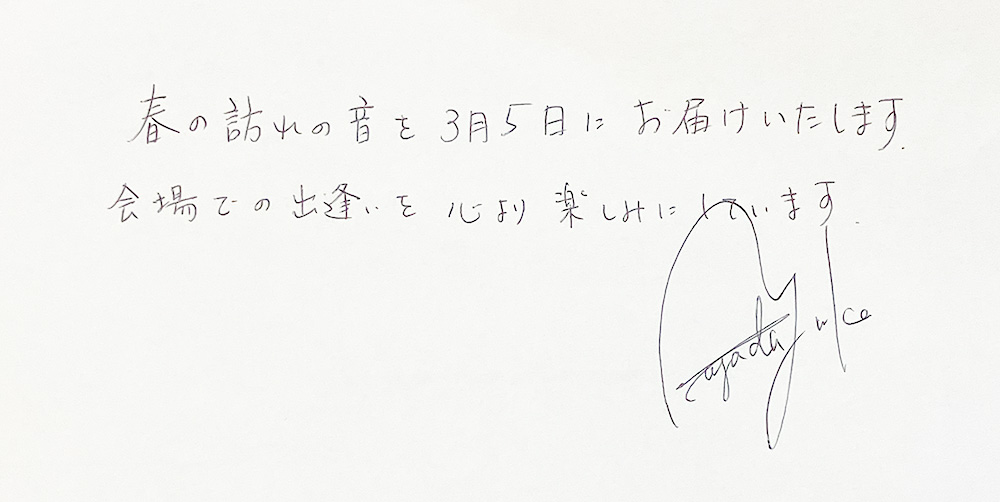 春の訪れの音を3月5日にお届けいたします.
会場での出逢いを心より楽しみにしています.